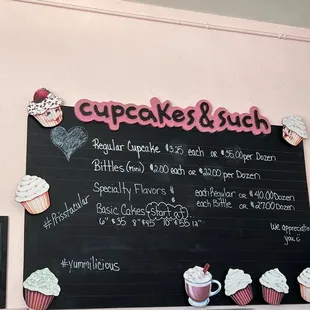 cupcakes & such
Regular Cupcake $3.25 each or $35.00 per Dozen
Bittles (mini) $2.00 each or $22.00 per Dozen
Specialty Flavors
each Regular or 40.00 Dozen
each Bittle or $27.00 Dozen
Basic Cakes Start at
6" $35 8" $45 10" $55 12"
#Prisstacular
We appreciate
you
#yummilicious